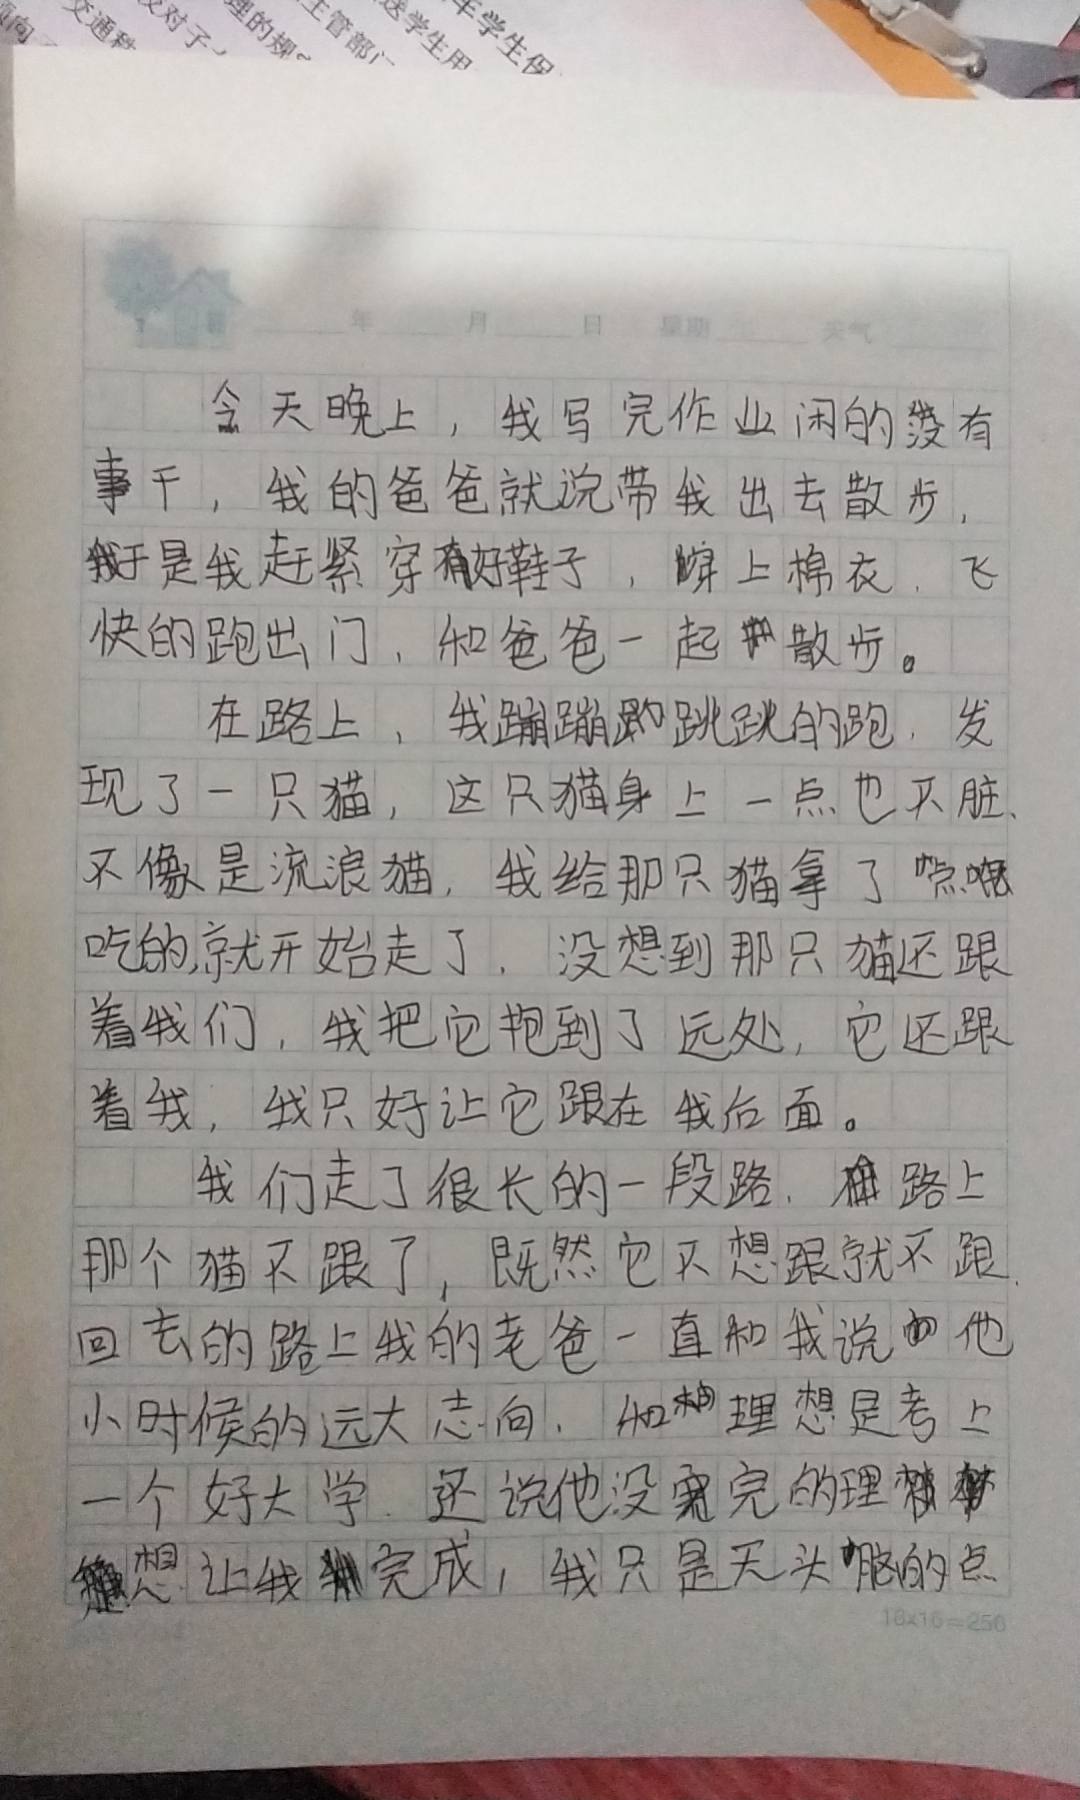 交通秩
反对子
理的规
主管部门
送学生用
年学生保
年 月 日 星期 天气
今天晚上，我写完作业闲的没有
事干，我的爸爸就说带我出去散步，
于是我赶紧穿好鞋子，穿上棉衣，飞
快的跑出门，和爸爸一起散步。
在路上，我蹦蹦跳跳的跑，发
现了一只猫，这只猫身上一点也不脏、
不像是流浪猫，我给那只猫拿了点
吃的,就开始走了，没想到那只猫还跟
着我们，我把它抱到了远处，它还跟
着我，我只好让它跟在我后面。
我们走了很长的一段路，路上
那个猫不跟了，既然它不想跟就不跟，
回去的路上我的老爸一直和我说他
小时候的远大志向，和理想是考上
一个好大学，还说他没完的理
想让我完成，我只是无头脑的点
16x16=256